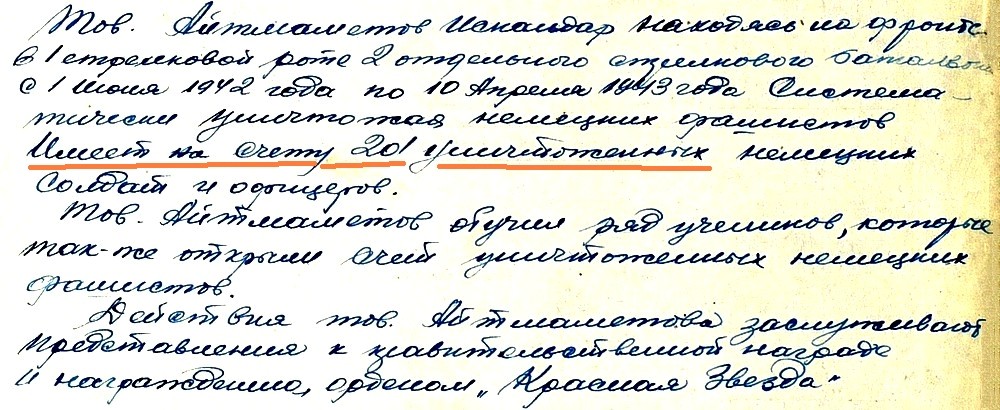 Тов. Айтмаметов Искандар находясь на фронте
в 1 стрелковой роте 2 отдельного стрелкового батальона
с 1 июня 1942 года по 10 Апреля 1943 года Система-
тически уничтожая немецких фашистов
Имеет на счету 201 уничтоженных немецких
солдат и офицеров.
Тов. Айтмаметов обучил ряд учеников, которые
так-же открыли счет уничтоженных немецких
фашистов.
Действия тов. Айтмаметова заслуживают
представления к правительственной награде
и награждению, орденом „Красная Звезда"